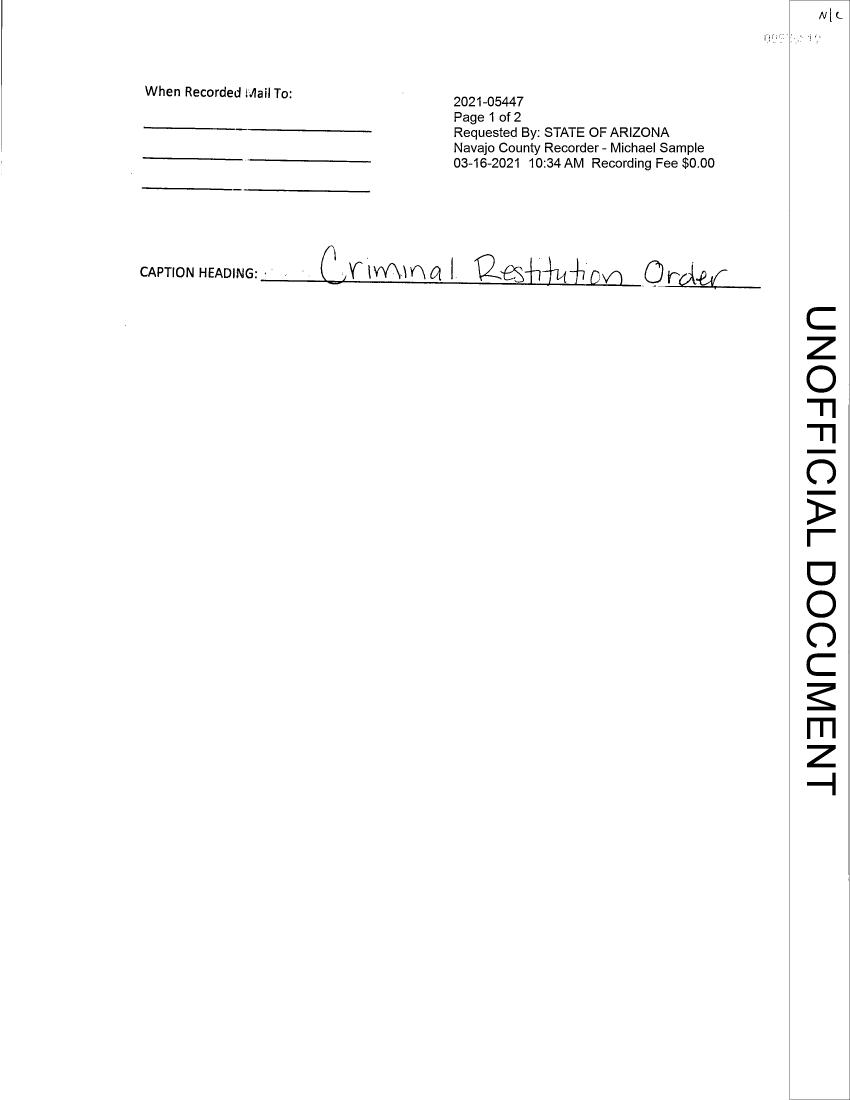 N/C
When Recorded Mail To:
2021-05447
Page 1 of 2
Requested By: STATE OF ARIZONA
Navajo County Recorder - Michael Sample
03-16-2021 10:34 AM Recording Fee $0.00
CAPTION HEADING: Criminal Restitution Order
UNOFFICIAL DOCUMENT